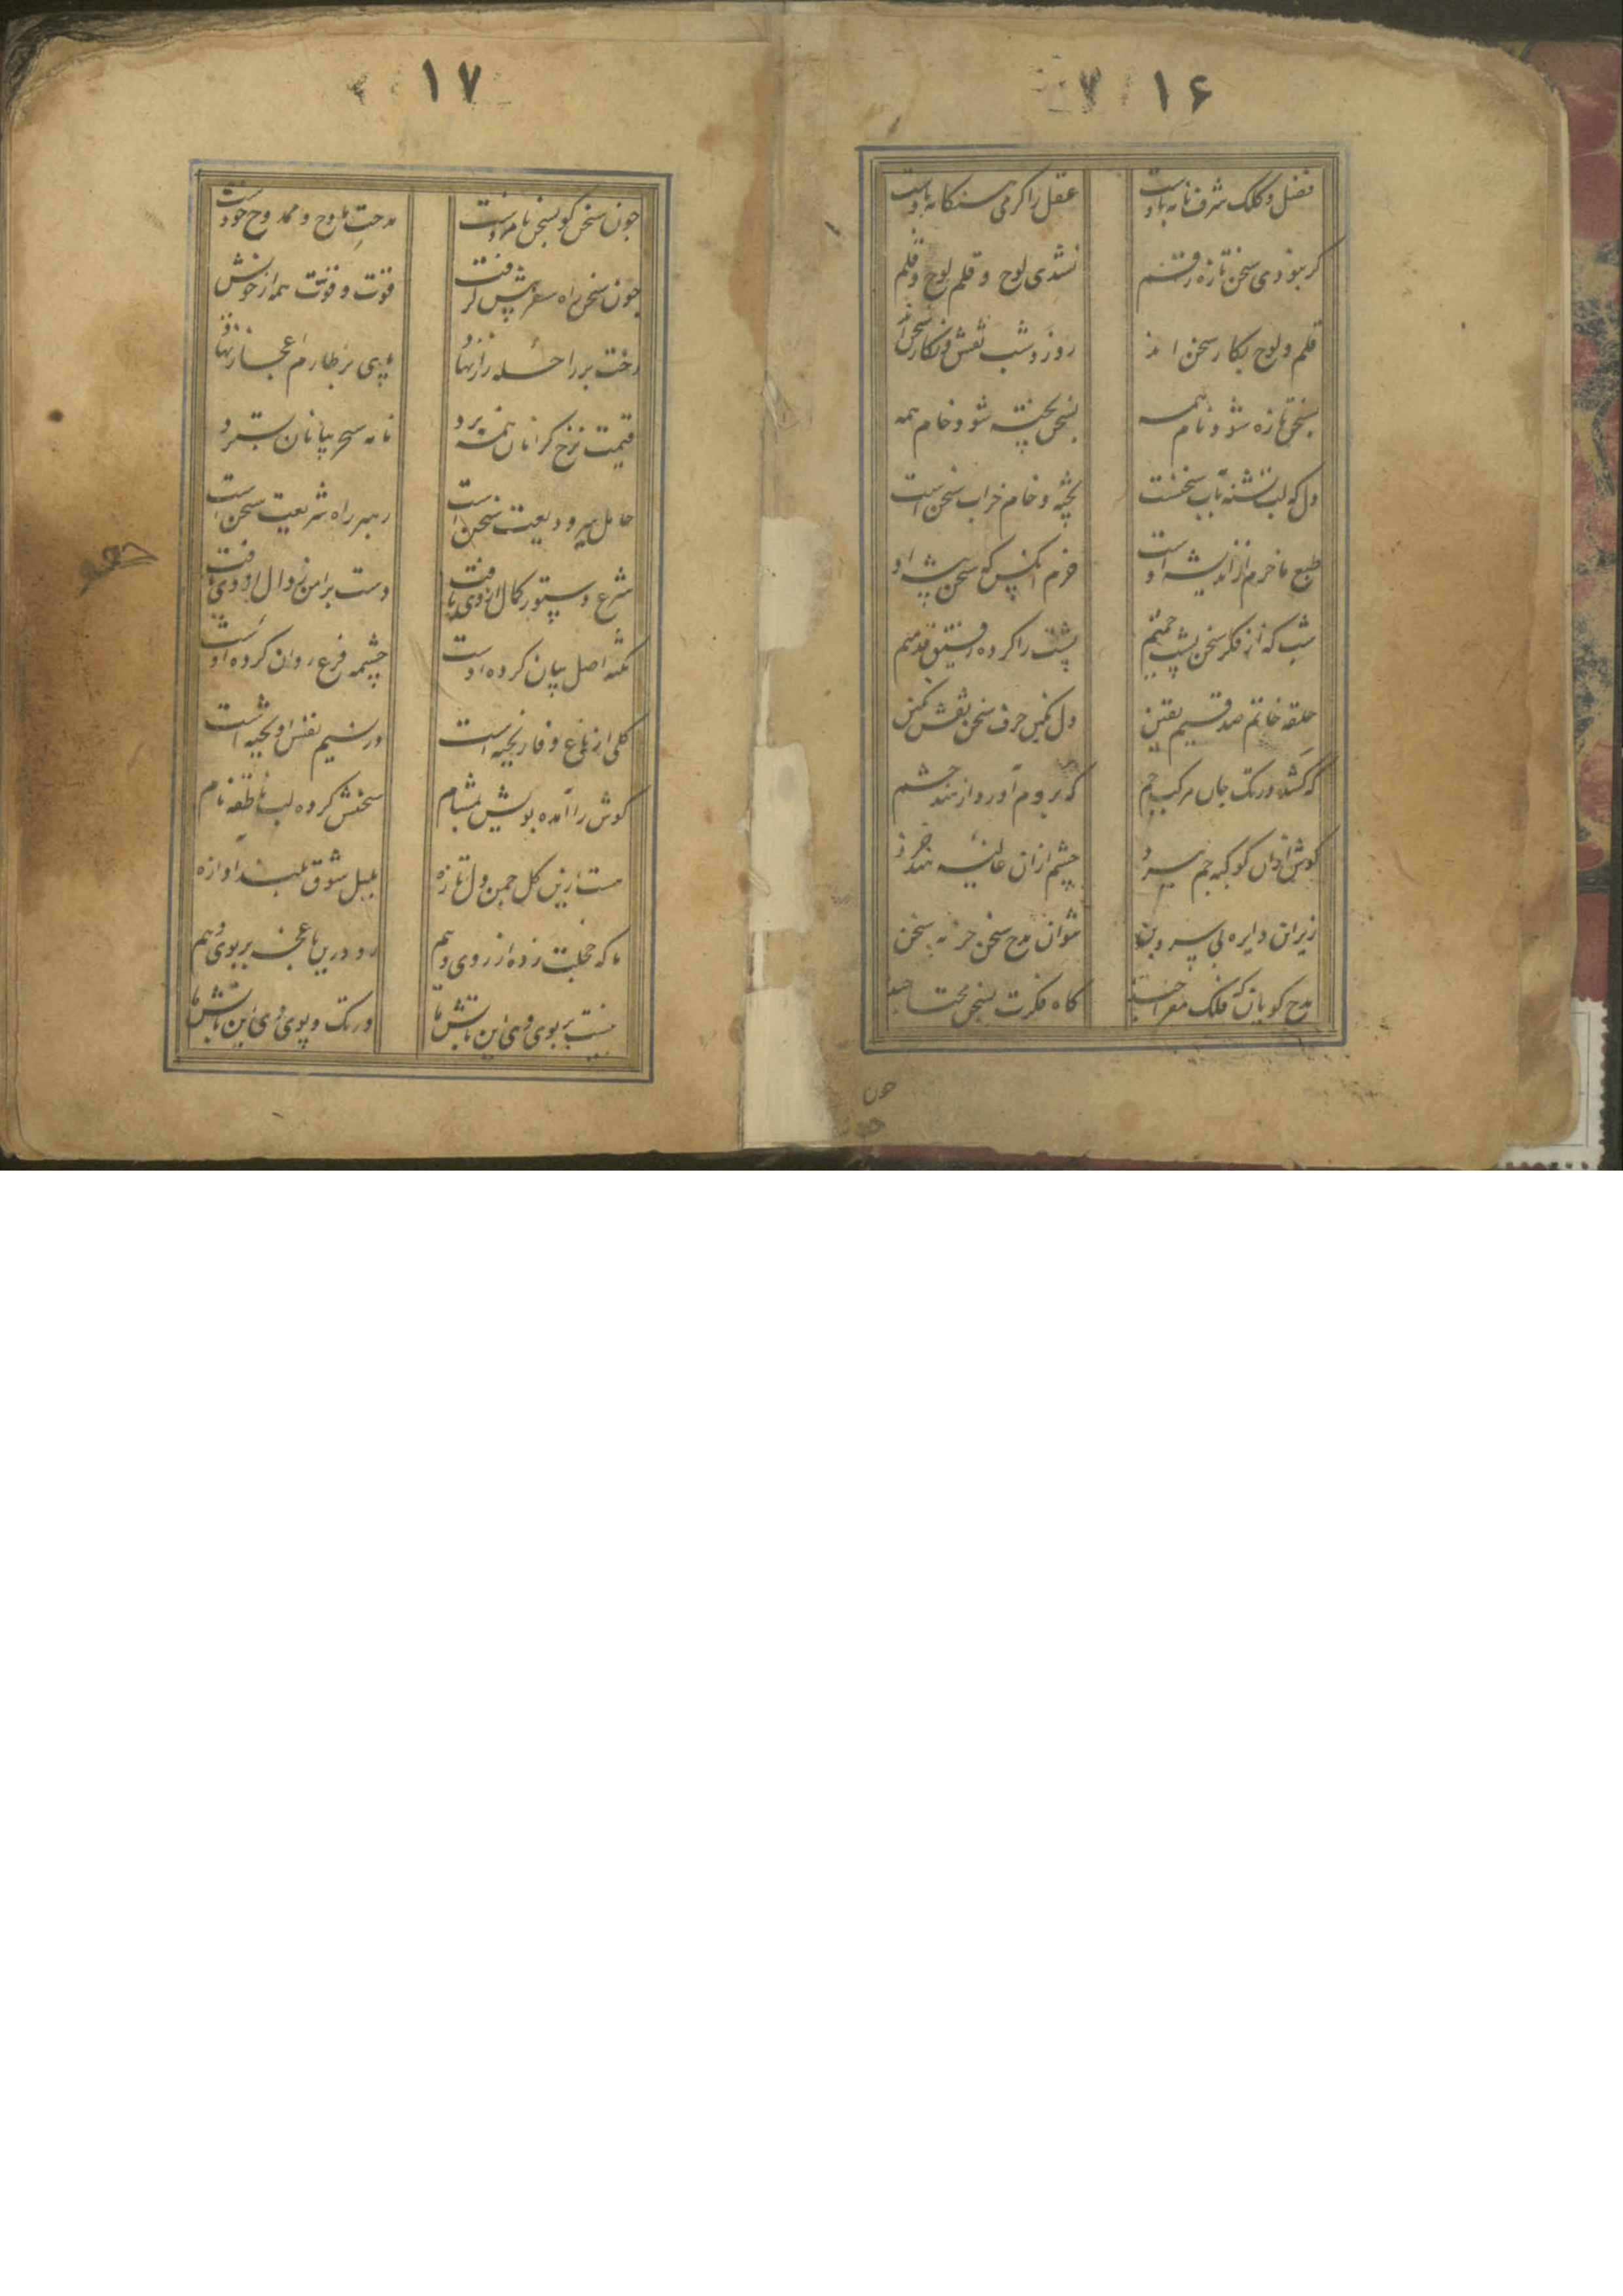 ۱۶
فضل و کلک شرف نامه باوست عقل را کرمی هنکامه باوست
کر نبودی سخن تازه رقم نشدی لوح و قلم لوح و قلم
قلم و لوح بکار سخن اند روز و شب نقش و نکار سخن اند
بسخن تازه شود نام همه بسخن پخته شود خام همه
دل که لب تشنه آب سخنست پخته و خام خراب سخن است
طبع ما خرم از اندیشه اوست خرم آنکس که سخن پیشه او
شب که از فکر سخن پشت خمیم پشت را کرده رفیق قدمیم
حلقه خاتم صدقیم یقین دل نکین حرف سخن نقش نکین
که کشد در تک جاں مرکب جم که بروم آورد از هند حشم
کوش ازان کوکبه جم سیرد چشم ازان غالیه هند خرد
زیر این دایره بی سر و بن نتوان مدح سخن جز به سخن
مدح کویان که فلک معراجند کاه فکرت بسخن محتاجند
چون
۱۷
جون سخن کو بسخن نامورست مدحت مادح و ممدوح خودست
جون سخن راه سفر پیش کرفت قوت و قوت همه از خویش کرفت
رخت بر راحله راز نهاد پی بر طارم اعجاز نهاد
قیمت نرخ کرانان همه برد نامه سحر بیانان بسترد
حامل سر ودیعت سخن است رهبر راه شریعت سخن است
شرع دستور کمال از وی یافت دست بر امن زوال از وی یافت
نکته اصل بیان کرده اوست چشمه فرع روان کرده اوست
کلی از باغ وفا ریخته است در نسیم نفس اویخته است
کوش را آمده بویش بمشام سخنش کرده لب ناطقه نام
هست ازین کل جمن دل تازه بلبل شوق بلند اوازه
ما که خجلت زده از روی ویم رو درین باغجه بر بوی ویم
نیست بر بوی وی این تابش ما در تک و پوی وی این تابش ما